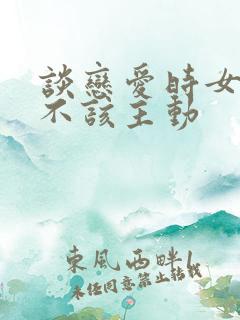 談戀愛時女
不該主動
東風西畔1
未經同意禁止轉載